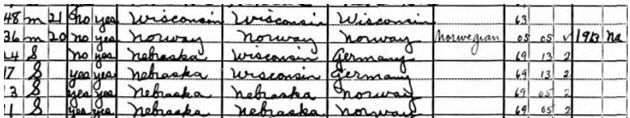 48 m 21 no yes Wisconsin Wisconsin Wisconsin 63
36 m 20 no yes Norway Norway Norway Norwegian 05 05 v 1913 Na
24 S no yes Nebraska Wisconsin Germany 69 13 2
17 S yes yes Nebraska Wisconsin Germany 69 13 2
3 S yes yes Nebraska Nebraska Norway 69 05 2
1 S yes yes Nebraska Nebraska Norway 69 05 2